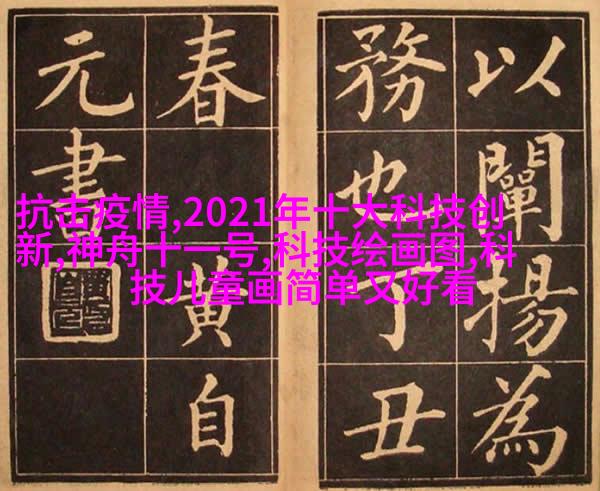 以闡揚為
務也丁丑
春黃自
元書
抗击疫情,2021年十大科技创
新,神舟十一号,科技绘画图,科
技儿童画简单又好看